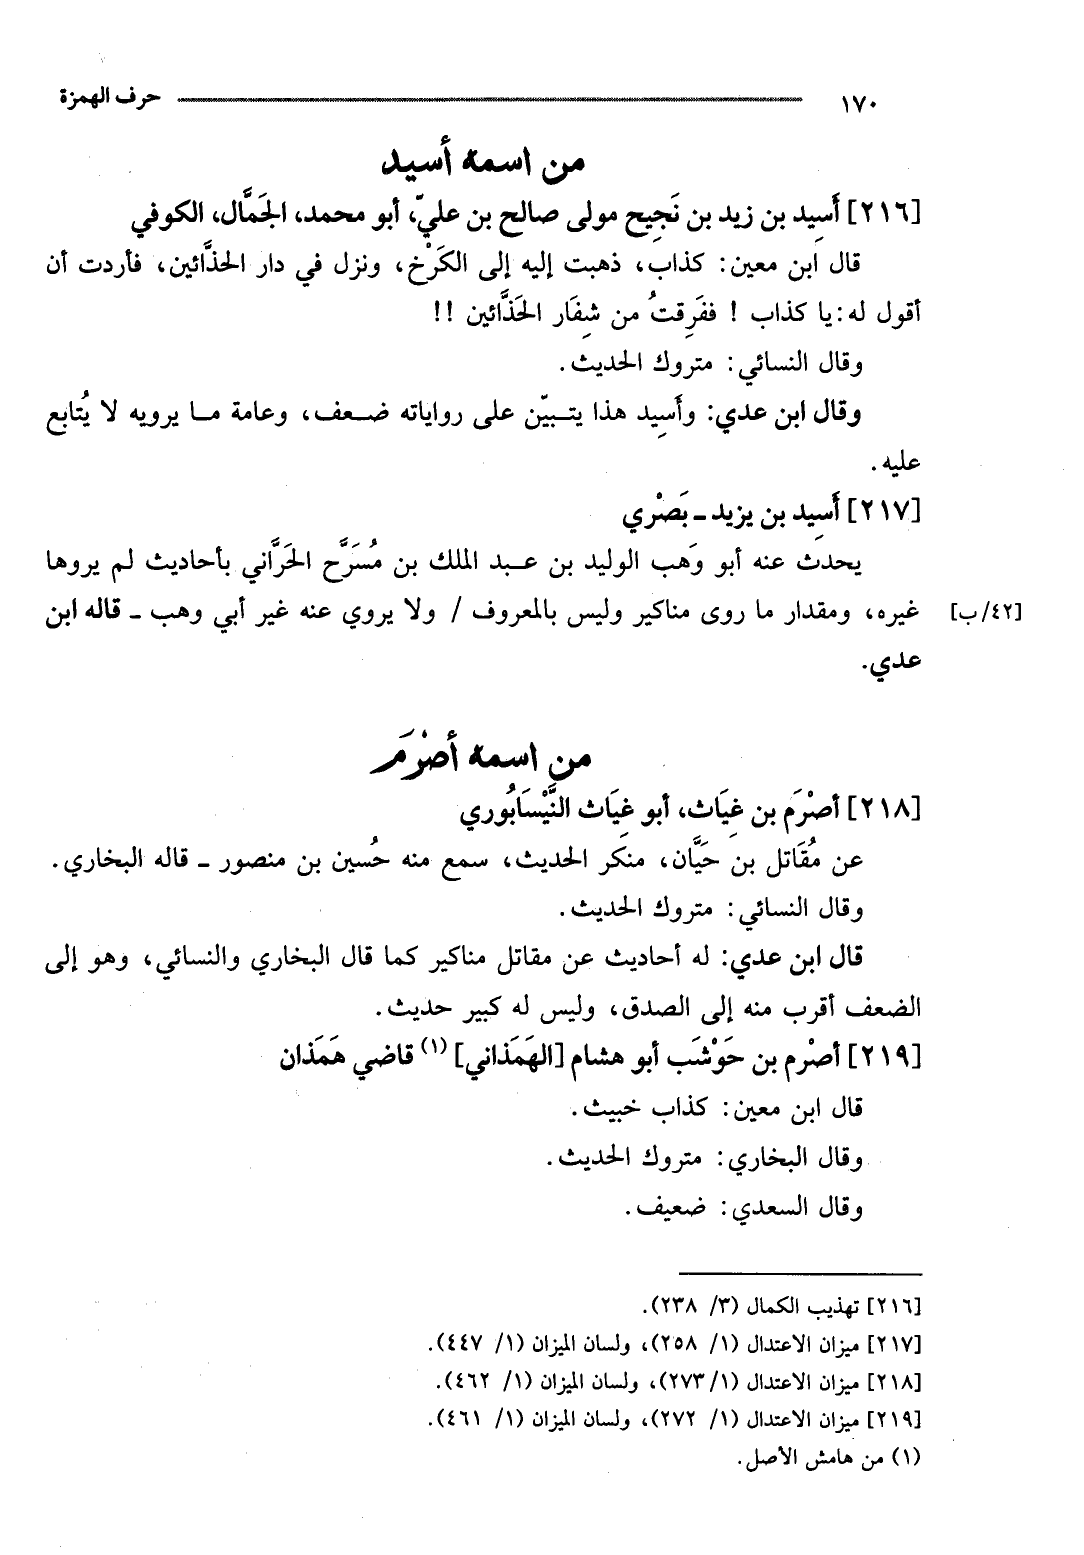 ١٧٠ حرف الهمزة
من اسمه أسيد
[٢١٦] أَسِيد بن زيد بن نَجِيح مولى صالح بن عليّ، أبو محمد، الجَمَّال، الكوفي
قال ابن معين: كذاب، ذهبت إليه إلى الكَرْخ، ونزل في دار الحذَّائين، فأردت أن
أقول له: يا كذاب ! ففَرِقتُ من شِفَار الحَذَّائين !!
وقال النسائي: متروك الحديث.
وقال ابن عدي: وأَسِيد هذا يتبيّن على رواياته ضعف، وعامة ما يرويه لا يُتابع
عليه.
[٢١٧] أَسِيد بن يزيد ـ بَصْري
يحدث عنه أبو وَهب الوليد بن عبد الملك بن مُسَرَّح الحَرَّاني بأحاديث لم يروها
[٤٢/ ب] غيره، ومقدار ما روى مناكير وليس بالمعروف / ولا يروي عنه غير أبي وهب ـ قاله ابن
عدي.
من اسمه أصْرَم
[٢١٨] أصْرَم بن غِيَاث، أبو غِيَاث النَّيْسَابُوري
عن مُقَاتل بن حَيَّان، منكر الحديث، سمع منه حُسين بن منصور ـ قاله البخاري.
وقال النسائي: متروك الحديث.
قال ابن عدي: له أحاديث عن مقاتل مناكير كما قال البخاري والنسائي، وهو إلى
الضعف أقرب منه إلى الصدق، وليس له كبير حديث.
[٢١٩] أصْرم بن حَوْشَب أبو هشام [الهَمَذاني] (١) قاضي هَمَذان
قال ابن معين: كذاب خبيث.
وقال البخاري: متروك الحديث.
وقال السعدي: ضعيف.
[٢١٦] تهذيب الكمال (٣/ ٢٣٨).
[٢١٧] ميزان الاعتدال (١/ ٢٥٨)، ولسان الميزان (١/ ٤٤٧).
[٢١٨] ميزان الاعتدال (١/ ٢٧٣)، ولسان الميزان (١/ ٤٦٢).
[٢١٩] ميزان الاعتدال (١/ ٢٧٢)، ولسان الميزان (١/ ٤٦١).
(١) من هامش الأصل.